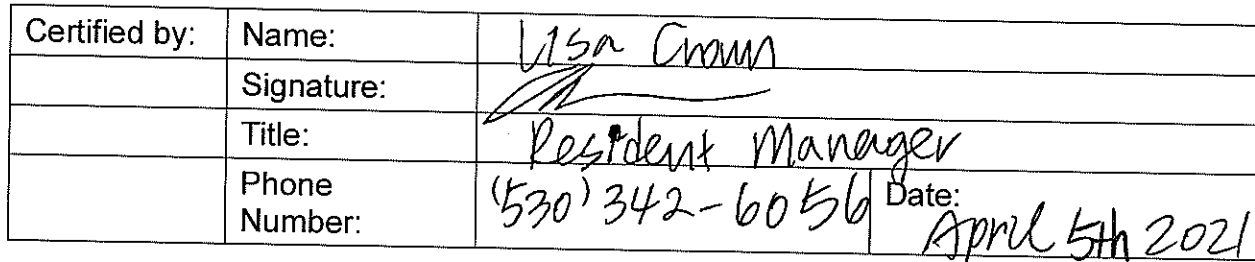 Certified by: Name: Lisa Crown
Signature:
Title: Resident Manager
Phone Number: (530) 342-6056 Date: April 5th 2021